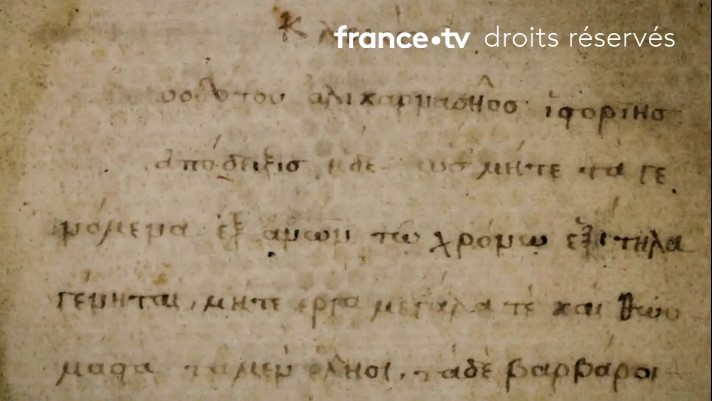 france•tv droits réservés
οδότου ἁλικαρνασῆος ἱστορίης
ἀπόδειξις ἥδε ὡς μήτε τὰ γε
νόμενα ἐξ ἀνων τῶ χρόνω ἐξίτηλα
γένηται, μήτε ἔργα μεγάλα τὲ καὶ θωυ
μαστὰ τὰ μὲν ἕλλησι, τὰ δὲ βαρβάροι